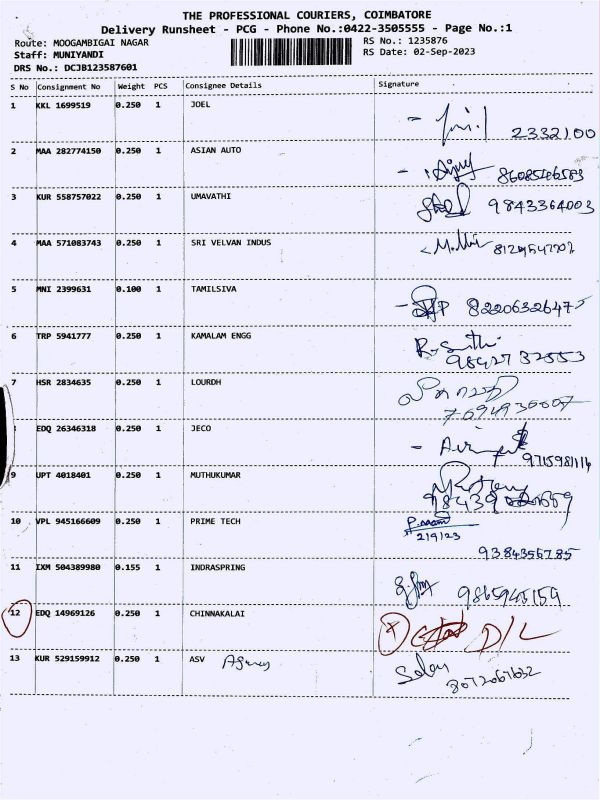 THE PROFESSIONAL COURIERS, COIMBATORE
Delivery Runsheet - PCG - Phone No.:0422-3505555 - Page No.:1
Route: MOOGAMBIGAI NAGAR RS No.: 1235876
Staff: MUNIYANDI RS Date: 02-Sep-2023
DRS No.: DCJB123587601
S No Consignment No Weight PCS Consignee Details Signature
1 KKL 1699519 0.250 1 JOEL
2332100
2 MAA 282774150 0.250 1 ASIAN AUTO
8608546583
3 KUR 558757022 0.250 1 UMAVATHI
9843364003
4 MAA 571083743 0.250 1 SRI VELVAN INDUS
5 MNI 2399631 0.100 1 TAMILSIVA
82206326475
6 TRP 5941777 0.250 1 KAMALAM ENGG
9842732553
7 HSR 2834635 0.250 1 LOURDH
EDQ 26346318 0.250 1 JECO
9 UPT 4018401 0.250 1 MUTHUKUMAR
10 VPL 945166609 0.250 1 PRIME TECH
2/9/23
9384356785
11 IXM 504389980 0.155 1 INDRASPRING
9865945159
12 EDQ 14969126 0.250 1 CHINNAKALAI
D/L
13 KUR 529159912 0.250 1 ASV Agency
8072067632